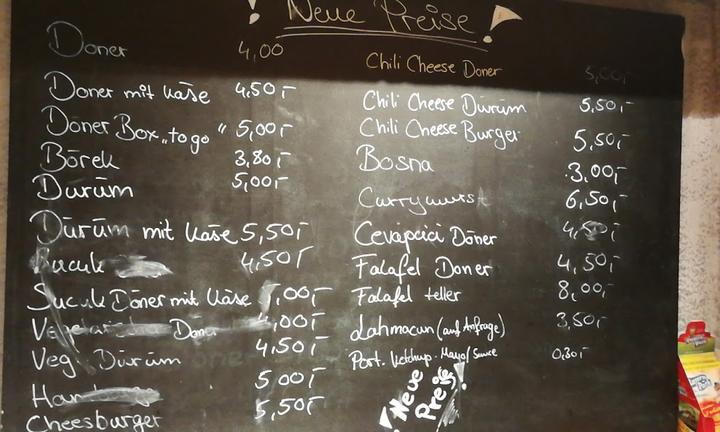 ! Neue Preise !
Döner 4,00
Döner mit Käse 4,50,-
Döner Box „to go" 5,00,-
Börek 3,80,-
Dürüm 5,00,-
Dürüm mit Käse 5,50,-
Sucuk 4,50,-
Sucuk Döner mit Käse 5,00,-
Döner 4,00,-
Veg. Dürüm 4,50,-
5,00,-
Cheesburger 5,50,-
Chili Cheese Döner 5,00,-
Chili Cheese Dürüm 5,50,-
Chili Cheese Burger 5,50,-
Bosna 3,00,-
Currywurst 6,50,-
Cevapcici Döner 4,50,-
Falafel Döner 4,50,-
Falafel teller 8,00,-
Lahmacun (auf Anfrage) 3,50,-
Port. Ketchup-Mayo/Sauce 0,30,-
! Neue
Preise !